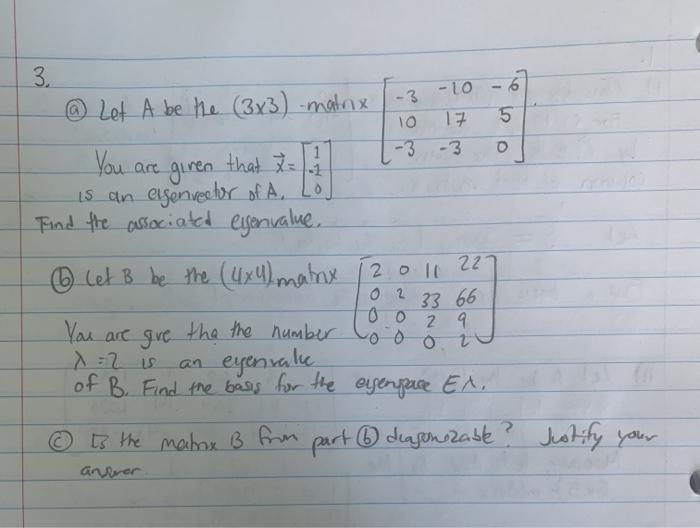 3.
(a) Let A be the (3x3) -matrix [-3 -10 -6
10 17 5
-3 -3 0].
You are given that x⃗ = [1
-1
0]
is an eigenvector of A.
Find the associated eigenvalue.
(b) Let B be the (4x4) matrix [2 0 11 22
0 2 33 66
0 0 2 9
0 0 0 2]
You are give tha the number
λ = 2 is an eigenvalue
of B. Find the basis for the eigenspace Eλ.
(c) Is the matrix B from part (b) diagonizable? Justify your
answer.